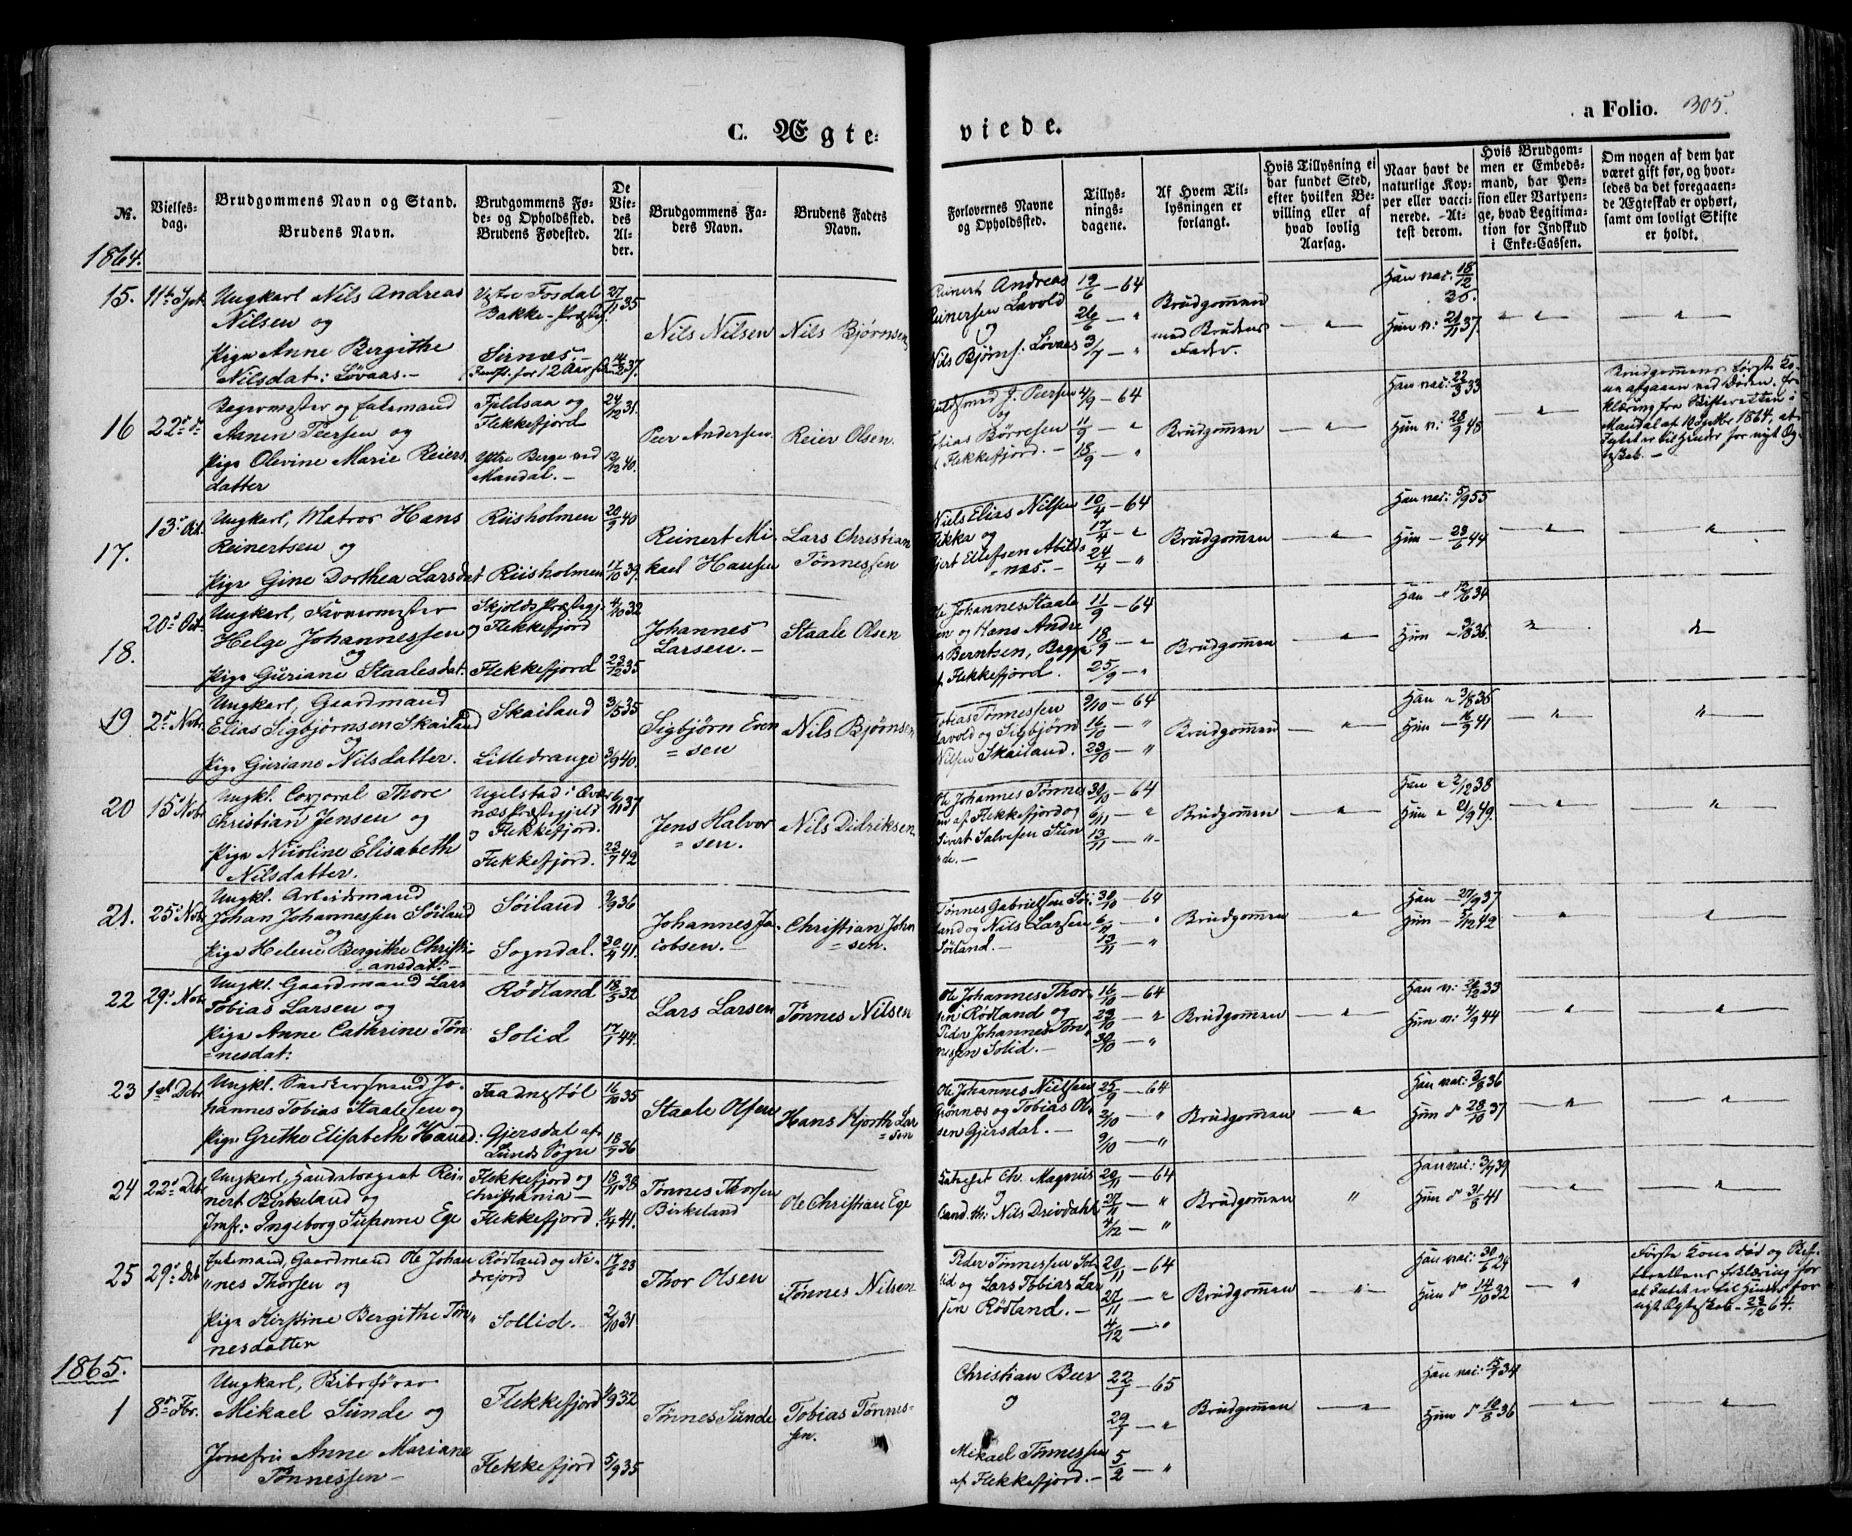 C. Ægte-
viede.
a Folio. 305.
№.
Vielses-
dag.
Brudgommens Navn og Stand.
Brudens Navn.
Brudgommens Fø-
de- og Opholdssted.
Brudens Fødested.
De
Vie-
des
Al-
der.
Brudgommens Fa-
ders Navn.
Brudens Faders
Navn.
Forlovernes Navne
og Opholdssted.
Tillys-
nings-
dagene.
Af Hvem Til-
lysningen er
forlangt.
Hvis Tillysning ei
har fundet Sted,
efter hvilken Be-
villing eller af
hvad lovlig
Aarsag.
Naar havt de
naturlige Kop-
per eller vacci-
nerede. -At-
test derom.
Hvis Brudgom-
men er Embeds-
mand, har Pen-
sion eller Vartpen-
ge, hvad Legitima-
tion for Indskud
i Enke-Cassen.
Om nogen af dem har
været gift før, og hvor-
ledes da det foregaaen-
de Ægteskab er ophørt,
samt om lovligt Skifte
er holdt.
1864.
15. 11te Spt.
Ungkarl Nils Andreas
Nilsen og
Pige Anne Bergithe
Nilsdat: Løvaas.-
Ystre Fosdal
Bakke-Præsteg.
Sirnæs,-
27/11 35
14/3 37.
Nils Nilsen
Nils Bjørnsen
Reinert Andreas
Reinertsen Lavold
og
Nils Bjørns. Løvaas
12/6 - 64
26/6 - "
3/7 - "
Brudgommen
med Brudens
Fader.
Han vac. 18/12 36.
Hun v: 21/11 37.
16 22de d.
Bagermester og Enkemand
Aanen Peersen og
Pige Olevine Marie Reiers
datter
Fjeldsaa og
Flekkefjord
Ystre Berge ved
Mandal.-
24/12 31.
12/12 40.
Peer Andersen.
Reier Olsen.
Guldsmed J. Peersen
og
Tobias Børresen
af Flekkefjord.-
4/9 - 64
11/9 - "
18/9 - "
Brudgommen
Han vac: 22/3 33
Hun v: 28/9 48
Brudgommens første Ko-
ne afgaaen ved Døden. Er-
klæring fra Skifteretten i
Mandal af 18 1864, at
Intet er til Hinder for nyt Æg-
teskab.-
17. 13de Oct.
Ungkarl, Matros Hans
Reinertsen og
Pige Gine Dorthea Larsdat
Riisholmen
Riisholmen
20/9 40
11/10 39.
Reinert Mi-
kael Hansen
Lars Christian
Tønnessen
Niels Elias Nilsen
Flikka og
Gjert Ellefsen Abilds
næs.-
10/4 - 64
17/4 - "
24/4 - "
Brudgommen
Han vac: 5/9 55
Hun - 23/6 44
18. 20de Oct.
Ungkarl, Farvermester
Helge Johannessen
og
Pige Guriane Staalesdat:
Skjolds Præstegj.
og Flekkefjord
Flekkefjord
4/10 32
23/12 35
Johannes
Larsen.-
Staale Olsen
Ole Johannes Staale
sen og Hans Andre
as Berntsen, Begge
af Flekkefjord.
11/9 - 64
18/9 - "
25/9 - "
Brudgommen
Han " 12/6 34
Hun - 9/8 36.
19 2den Novbr
Ungkarl, Gaardmand
Elias Sigbjørnsen Skailand
og
Pige Guriane Nilsdatter.
Skailand
Lilledrange
3/5 35
3/9 40.
Sigbjørn Even
sen
Nils Bjørnsen
Tobias Tønnessen
Lavold og Sigbjørn
Nilsen Skailand.
9/10 - 64
16/10 - "
23/10 - "
Brudgommen
Han " 3/8 36
Hun - 16/9 41
20 15de Nobr
Ungkl. Corporal Thore
Christian Jensen og
Pige Nicoline Elisabeth
Nilsdatter.
Ugelstad i Qvi-
næs Præstegjeld
og Flekkefjord.
Flekkefjord.
6/11 37
23/7 42
Jens Halvor
sen.
Nils Didriksen
Ole Johannes Tønnes
sen af Flekkefjord og
Sivert Salvesen Sun
de.-
30/10 - 64
6/11 - "
13/11 - "
Brudgommen
Han " 2/12 38
Hun " 21/9 49.
21. 25de Nobr
Ungkl. Arbeidsmand
Johan Johannessen Søiland
og
Pige Helene Bergithe Christi-
ansdat:-
Søiland
Sogndal.
9/9 36
30/4 41.
Johannes Ja-
cobsen.-
Christian John
sen.
Tønnes Gabrielsen Søi-
land og Nils Larsen
Søiland.-
30/10 - 64
6/11 - "
13/11 - "
Brudgommen
Han - 27/9 37
Hun - 5/12 42
22 29de Nobr
Ungkl. Gaardmand Lars
Tobias Larsen og
Pige Anne Cathrine Tøn
nesdat:
Rødland
Solid
18/5 32
17/7 44.
Lars Larsen
Tønnes Nilsen
Ole Johannes Thor-
sen Rødland og
Peder Johannes Tøn
nessen Solid.-
16/10 - 64
23/10 - "
30/10 - "
Brudgommen
Han v: 26/12 33
Hun v: 4/9 44
23 1ste Decbr
Ungkl. Snedkersvend Jo-
hannes Tobias Staalesen og
Pige Grethe Elisabeth Hansd:
Faadnestøl
Gjersdal af
Lunds Sogn
16/10 35
18/7 36
Staale Olsen
Hans Hjorth Lar
sen
Ole Johannes Nielsen
Grønnæs og Tobias Ol-
sen Gjersdal.-
25/9 - 64
2/10 - "
9/10 - "
Brudgommen
Han vac: 3/8 36
Hun d 28/10 37
24 22de Decbr
Ungkarl, Handelsagent Rei-
nert Birkeland og
Jmfr: Ingeborg Susanne Ege
Flekkefjord og
Christiania-
Flekkefjord.
13/11 38
11/4 41.
Tønnes Thorsen
Birkeland
Ole Christian Ege
Ch. Magnus
og
Cand. th: Nils Drivdahl
20/11 - 64
27/11 - "
4/12 - "
Brudgommen
Han vac: 3/7 39
Hun d 31/8 41
25 29de Decb
Enkemand, Gaardmand Ole Johan
nes Thorsen og
Pige Kirstine Bergithe Tøn-
nesdatter
Rødland og Ne-
drejord
Sollid.
17/6 23
2/10 31
Thor Olsen
Tønnes Nilsen
Peder Tønnessen Sol
lid og Lars Tobias Lar
sen Rødland.-
20/11 - 64
27/11 - "
4/12 - "
Brudgommen
Han vac: 30/6 24
Hun d 14/10 32
Første Kone død og Skif-
terettens Erklæring for
at Intet er til Hinder for
nyt Ægteskab. 23/12 64.
1865.
1 8de Fbr.
Ungkarl, Skibsfører
Mikael Sunde og
Jomfru Anne Mariane
Tønnessen-
Flekkefjord
Flekkefjord
4/9 32
5/9 35
Tønnes Sunde
Tobias Tønnes-
sen.
Christian Beer
og
Mikael Tønnessen
af Flekkefjord.-
22/1 - 65
29/1 - "
5/2 - "
Brudgommen
Han vac: 5/7 34
Hun d 16/8 36